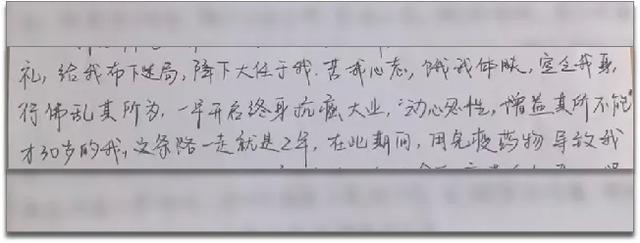 礼，给我布下迷局，降下大任于我．苦我心志，饿我体肤，空乏我身，
行佛乱其所为，一早开启终身抗癌大业，“动心忍性，增益其所不能”
才30岁的我，这条路一走就是2年，在此期间，用免疫药物导致我